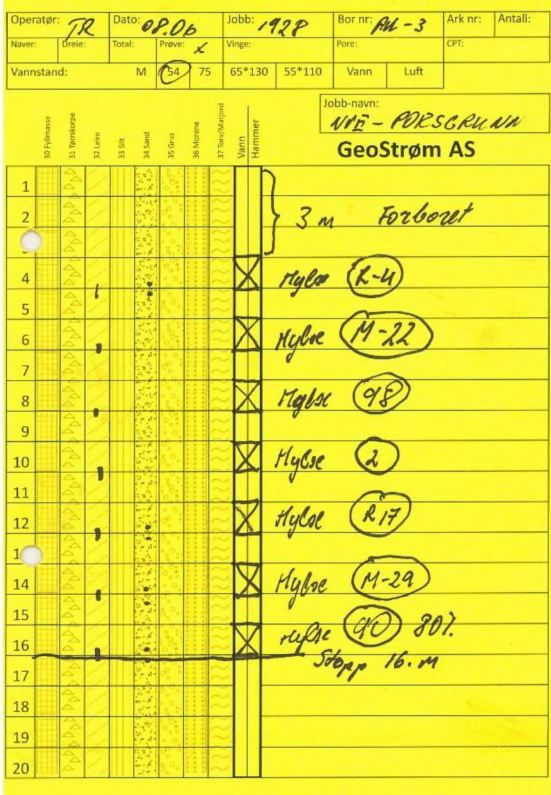 Operatør: TR Dato: 08.06 Jobb: 1928 Bor nr: AW-3 Ark nr: Antall:
Naver: Dreie: Total: Prøve: x Vinge: Pore: CPT:
Vannstand: M 54 75 65*130 55*110 Vann Luft
Jobb-navn:
NVE - PORSGRUNN
GeoStrøm AS
30 Fyllmasse 31 Tørrskorpe 32 Leire 33 Silt 34 Sand 35 Grus 36 Morene 37 Torv/Matjord Vann Hammer
1
2 3 m Forboret
4 Hylse R-4
5
6 Hylse M-22
7
8 Hylse 98
9
10 Hylse 2
11
12 Hylse R17
1
14 Hylse M-29
15
16 Hylse 90 80%
Stopp 16. m
17
18
19
20